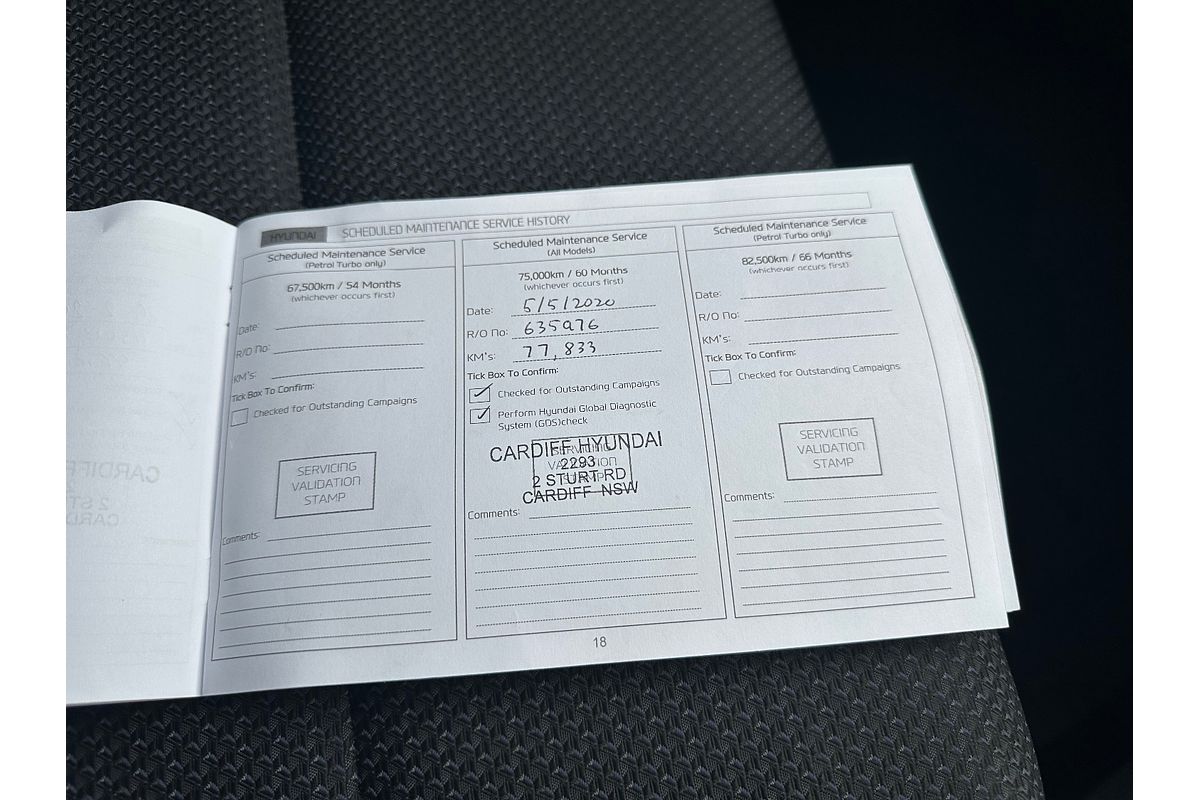 HYUNDAI SCHEDULED MAINTENANCE SERVICE HISTORY
Scheduled Maintenance Service
(Petrol Turbo only)
67,500km / 54 Months
(whichever occurs first)
Date:
R/O No:
KM's:
Tick Box To Confirm:
Checked for Outstanding Campaigns
SERVICING
VALIDATION
STAMP
Comments:
Scheduled Maintenance Service
(All Models)
75,000km / 60 Months
(whichever occurs first)
Date: 5/5/2020
R/O No: 635976
KM's: 77,833
Tick Box To Confirm:
Checked for Outstanding Campaigns
Perform Hyundai Global Diagnostic
System (GDS)check
CARDIFF HYUNDAI
SERVICING
2293
VALIDATION
2 STURT RD
STAMP
CARDIFF NSW
Comments:
Scheduled Maintenance Service
(Petrol Turbo only)
82,500km / 66 Months
(whichever occurs first)
Date:
R/O No:
KM's:
Tick Box To Confirm:
Checked for Outstanding Campaigns
SERVICING
VALIDATION
STAMP
Comments:
18